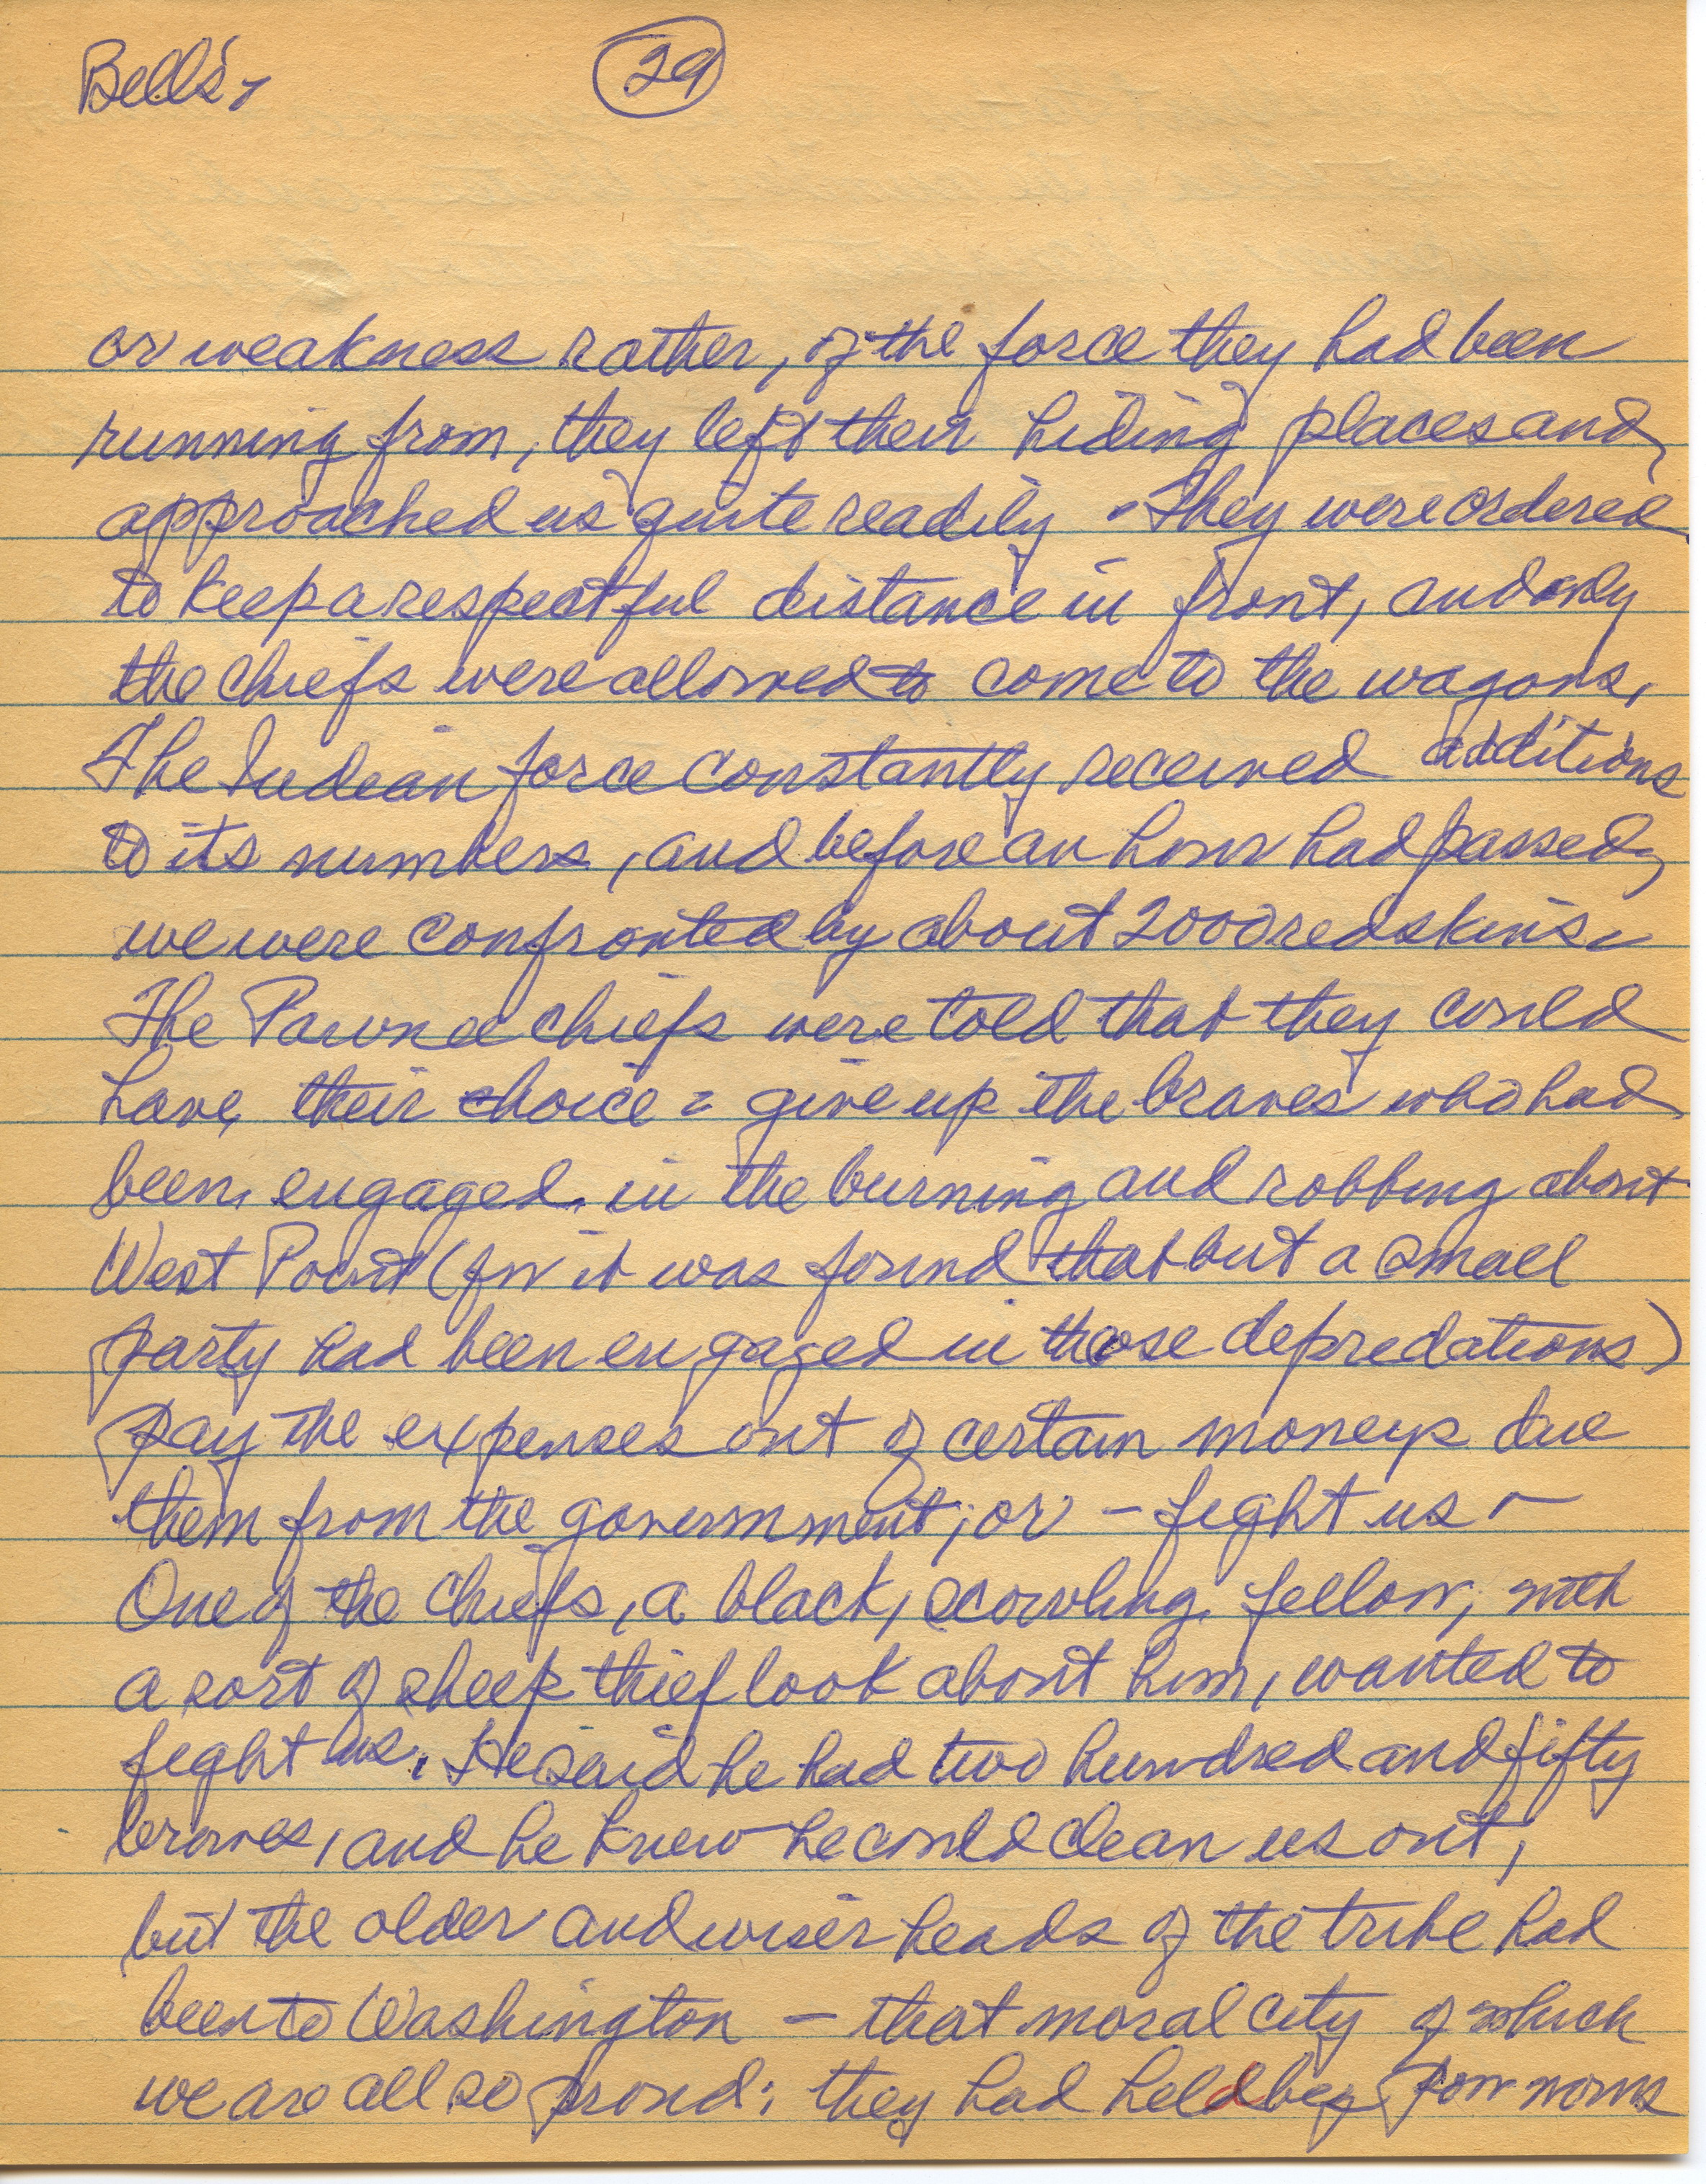 Bell's,
29
or weakness rather, of the force they had been
running from, they left their hiding places and
approached us quite readily. They were ordered
to keep a respectful distance in front, and only
the chiefs were allowed to come to the wagons,
The Indian force constantly received additions
to its numbers, and before an hour had passed,
we were confronted by about 2000 redskins.
The Pawnee chiefs were told that they could
have their choice = give up the braves who had
been engaged in the burning and robbing about
West Point (for it was found that but a small
party had been engaged in those depredations)
pay the expenses out of certain moneys due
them from the government; or – fight us –
One of the chiefs, a black, scowling, fellow, with
a sort of sheep thief look about him, wanted to
fight us. He said he had two hundred and fifty
braves, and he knew he could clean us out,
but the older and wiser heads of the tribe had
been to Washington – that moral city of which
we are all so proud; they had held big pow wows